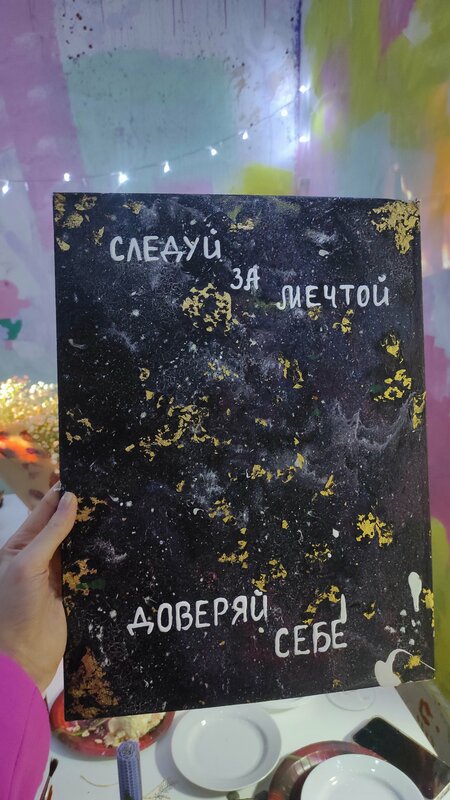 СЛЕДУЙ
ЗА
МЕЧТОЙ
ДОВЕРЯЙ
СЕБЕ